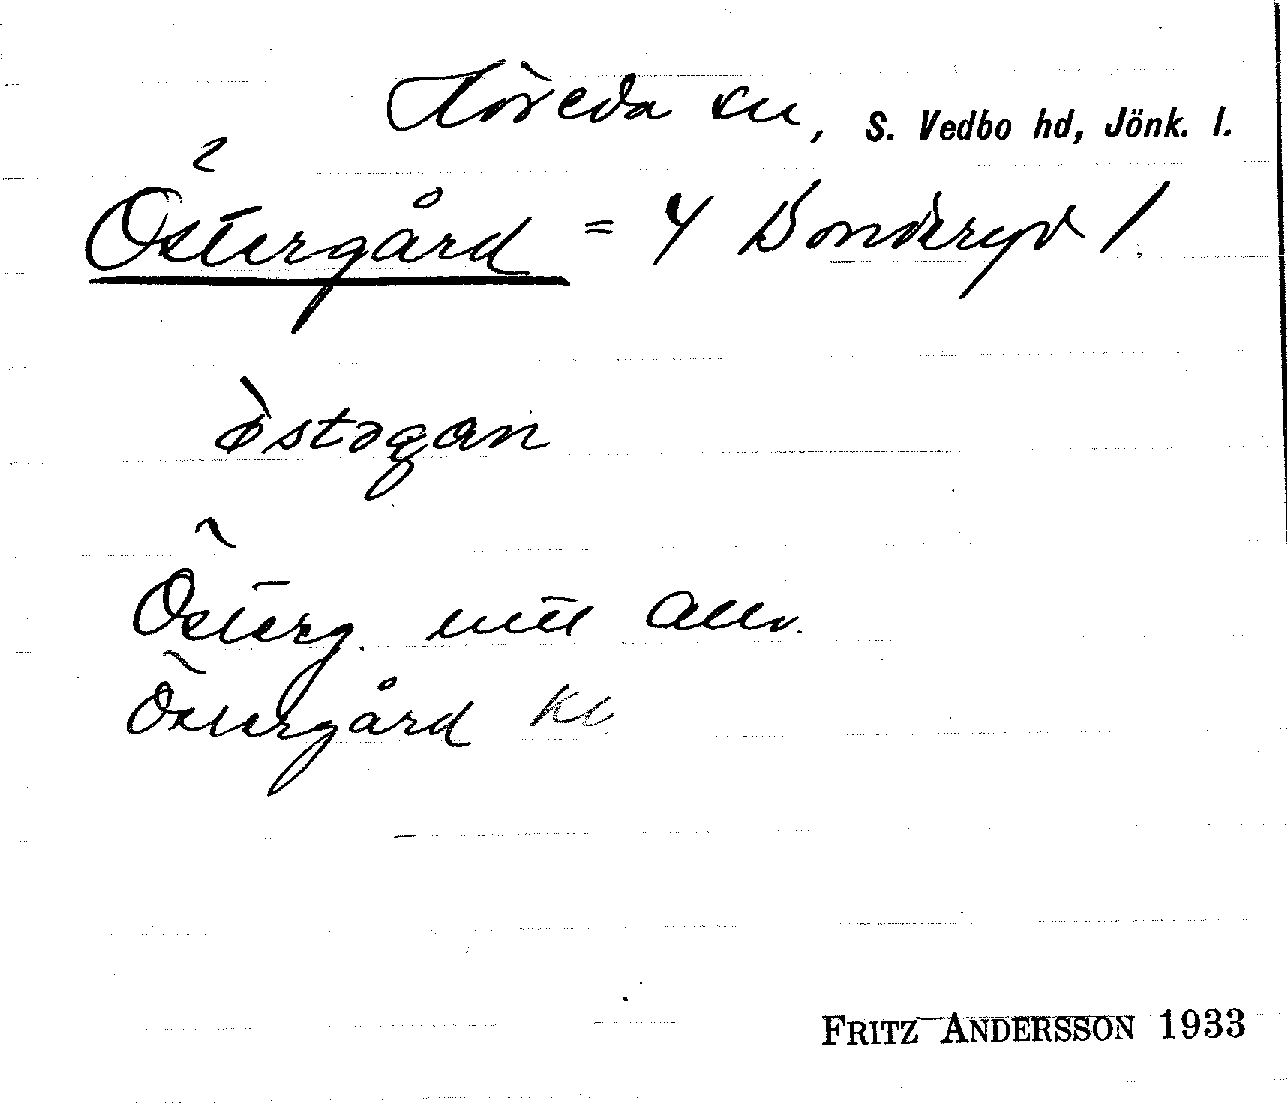 Höreda sn, S. Vedbo hd, Jönk. l.
Östergård = Y Bonderyd /
östəgan
Österg. utt allm.
Östergård Kl
FRITZ ANDERSSON 1933